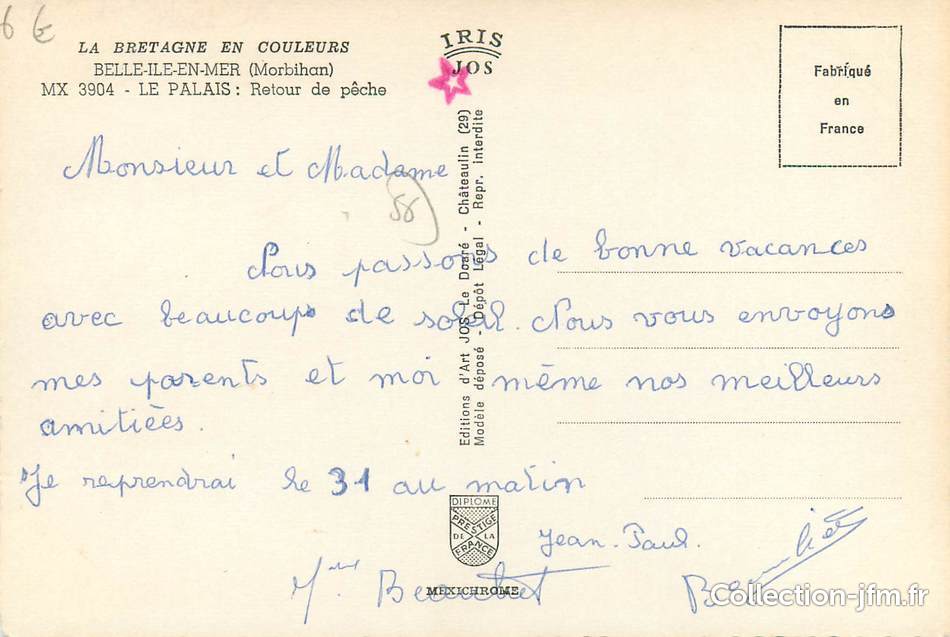 6 €
LA BRETAGNE EN COULEURS
BELLE-ILE-EN-MER (Morbihan)
MX 3904 - LE PALAIS : Retour de pêche
IRIS
JOS
Fabriqué
en
France
Monsieur et Madame
58
Nous passons de bonne vacances
avec beaucoup de soleil. Nous vous envoyons
mes parents et moi même nos meilleurs
amitiées.
Je reprendrai le 31 au matin
Jean-Paul.
Mme
Editions d'Art JOS Le Doaré - Châteaulin (29)
Modèle déposé - Dépôt Légal - Repr. interdite
DIPLOME
PRESTIGE
DE LA
FRANCE
MEXICHROME
Collection-jfm.fr